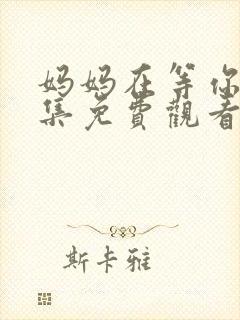 妈妈在等你
集免費觀看
斯卡雅